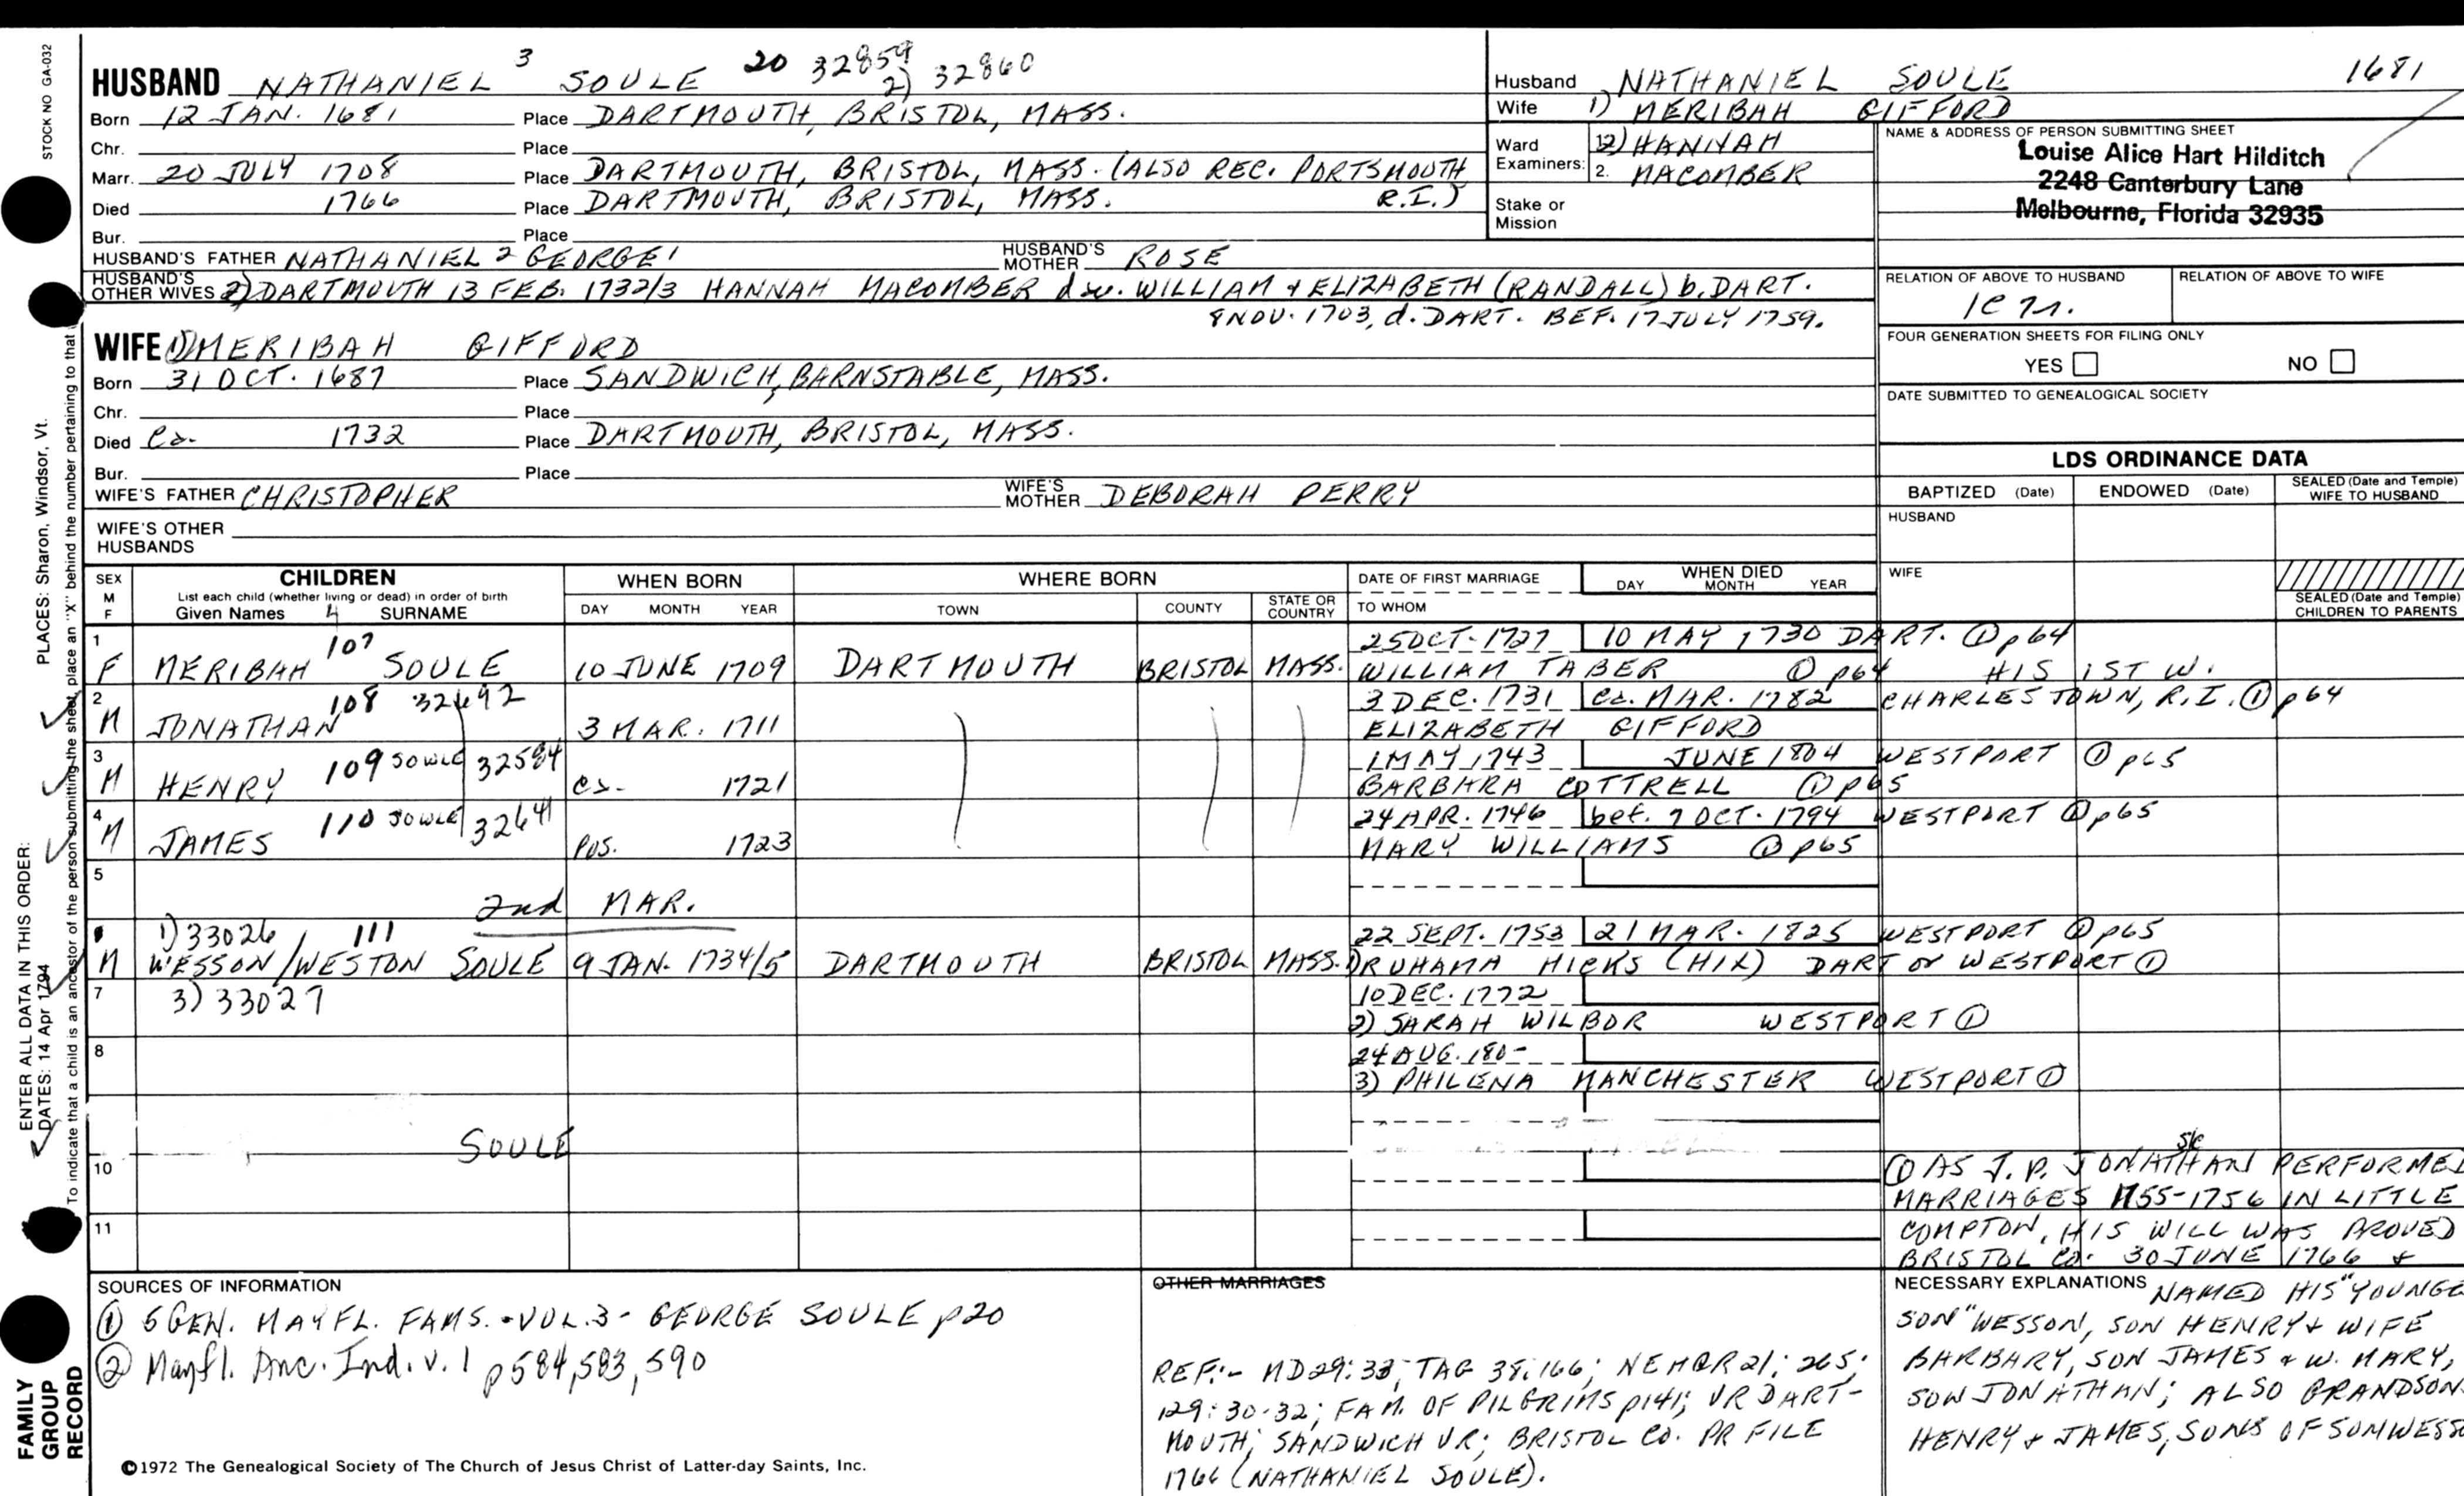 STOCK NO GA-032
HUSBAND NATHANIEL 3 SOULE 20 32859
2) 32860
Born 12 JAN. 1681 Place DARTMOUTH, BRISTOL, MASS.
Chr. Place
Marr. 20 JULY 1708 Place DARTMOUTH, BRISTOL, MASS. (ALSO REC. PORTSMOUTH
R.I.)
Died 1766 Place DARTMOUTH, BRISTOL, MASS.
Bur. Place
HUSBAND'S FATHER NATHANIEL 2 GEORGE 1 HUSBAND'S MOTHER ROSE
HUSBAND'S OTHER WIVES 2) DARTMOUTH 13 FEB. 1732/3 HANNAH MACOMBER daw. WILLIAM & ELIZABETH (RANDALL) b. DART.
8 NOV. 1703, d. DART. BEF. 17 JULY 1759.
WIFE 1) MERIBAH GIFFORD
Born 31 OCT. 1687 Place SANDWICH, BARNSTABLE, MASS.
Chr. Place
Died Ca. 1732 Place DARTMOUTH, BRISTOL, MASS.
Bur. Place
WIFE'S FATHER CHRISTOPHER WIFE'S MOTHER DEBORAH PERRY
WIFE'S OTHER
HUSBANDS
Husband NATHANIEL SOULE 1681
Wife 1) MERIBAH GIFFORD
Ward Examiners: 1 2) HANNAH
2. MACOMBER
Stake or
Mission
NAME & ADDRESS OF PERSON SUBMITTING SHEET
Louise Alice Hart Hilditch
2248 Canterbury Lane
Melbourne, Florida 32935
RELATION OF ABOVE TO HUSBAND RELATION OF ABOVE TO WIFE
FOUR GENERATION SHEETS FOR FILING ONLY
YES NO
DATE SUBMITTED TO GENEALOGICAL SOCIETY
LDS ORDINANCE DATA
BAPTIZED (Date) ENDOWED (Date) SEALED (Date and Temple) WIFE TO HUSBAND
HUSBAND
WIFE
SEALED (Date and Temple) CHILDREN TO PARENTS
SEX M F CHILDREN WHEN BORN WHERE BORN DATE OF FIRST MARRIAGE WHEN DIED
List each child (whether living or dead) in order of birth
Given Names 4 SURNAME DAY MONTH YEAR TOWN COUNTY STATE OR COUNTRY TO WHOM DAY MONTH YEAR
1 25 OCT. 1727 10 MAY 1730 DART. ① p64
F MERIBAH 107 SOULE 10 JUNE 1709 DARTMOUTH BRISTOL MASS. WILLIAM TABER ① p64 HIS 1ST W.
2 108 32692 3 DEC. 1731 Ca. MAR. 1782 CHARLESTOWN, R.I. ① p64
M JONATHAN 3 MAR. 1711 ELIZABETH GIFFORD
3 109 SOWLE 32584 1 MAY 1743 JUNE 1804 WESTPORT ① p65
M HENRY Ca. 1721 BARBARA COTTRELL ① p65
4 110 SOWLE 32641 24 APR. 1746 bef. 7 OCT. 1794 WESTPORT ① p65
M JAMES POS. 1723 MARY WILLIAMS ① p65
5
2nd MAR.
1) 33026 111 22 SEPT. 1753 21 MAR. 1825 WESTPORT ① p65
M WESSON/WESTON SOULE 9 JAN. 1734/5 DARTMOUTH BRISTOL MASS. 1) RUHAMA HICKS (HIX) DART or WESTPORT ①
7 3) 33027 10 DEC. 1772
2) SARAH WILBOR WESTPORT ①
8 24 AUG. 180-
3) PHILENA MANCHESTER WESTPORT ①
SOULE
10
11
sic
① AS J.P. JONATHAN PERFORMED
MARRIAGES 1755-1756 IN LITTLE
COMPTON, HIS WILL WAS PROVED
BRISTOL CO. 30 JUNE 1766 &
NECESSARY EXPLANATIONS NAMED HIS "YOUNGE
SON" WESSON, SON HENRY & WIFE
BARBARY, SON JAMES & W. MARY,
SON JONATHAN; ALSO GRANDSON
HENRY & JAMES, SONS OF SON WESS
SOURCES OF INFORMATION
① 5 GEN. MAYFL. FAMS. - VOL. 3 - GEORGE SOULE p20
② Mayfl. Anc. Ind. v. 1 p584, 583, 590
OTHER MARRIAGES
REF:- MD 29:33; TAG 38:166; NEHGR 21: 265;
129: 30-32; FAM. OF PILGRIMS p141; VR DART-
MOUTH; SANDWICH VR; BRISTOL CO. PR FILE
1766 (NATHANIEL SOULE).
©1972 The Genealogical Society of The Church of Jesus Christ of Latter-day Saints, Inc.
ENTER ALL DATA IN THIS ORDER:
DATES: 14 Apr 1794
PLACES: Sharon, Windsor, Vt.
To indicate that a child is an ancestor of the person submitting the sheet, place an "X" behind the number pertaining to that
FAMILY
GROUP
RECORD